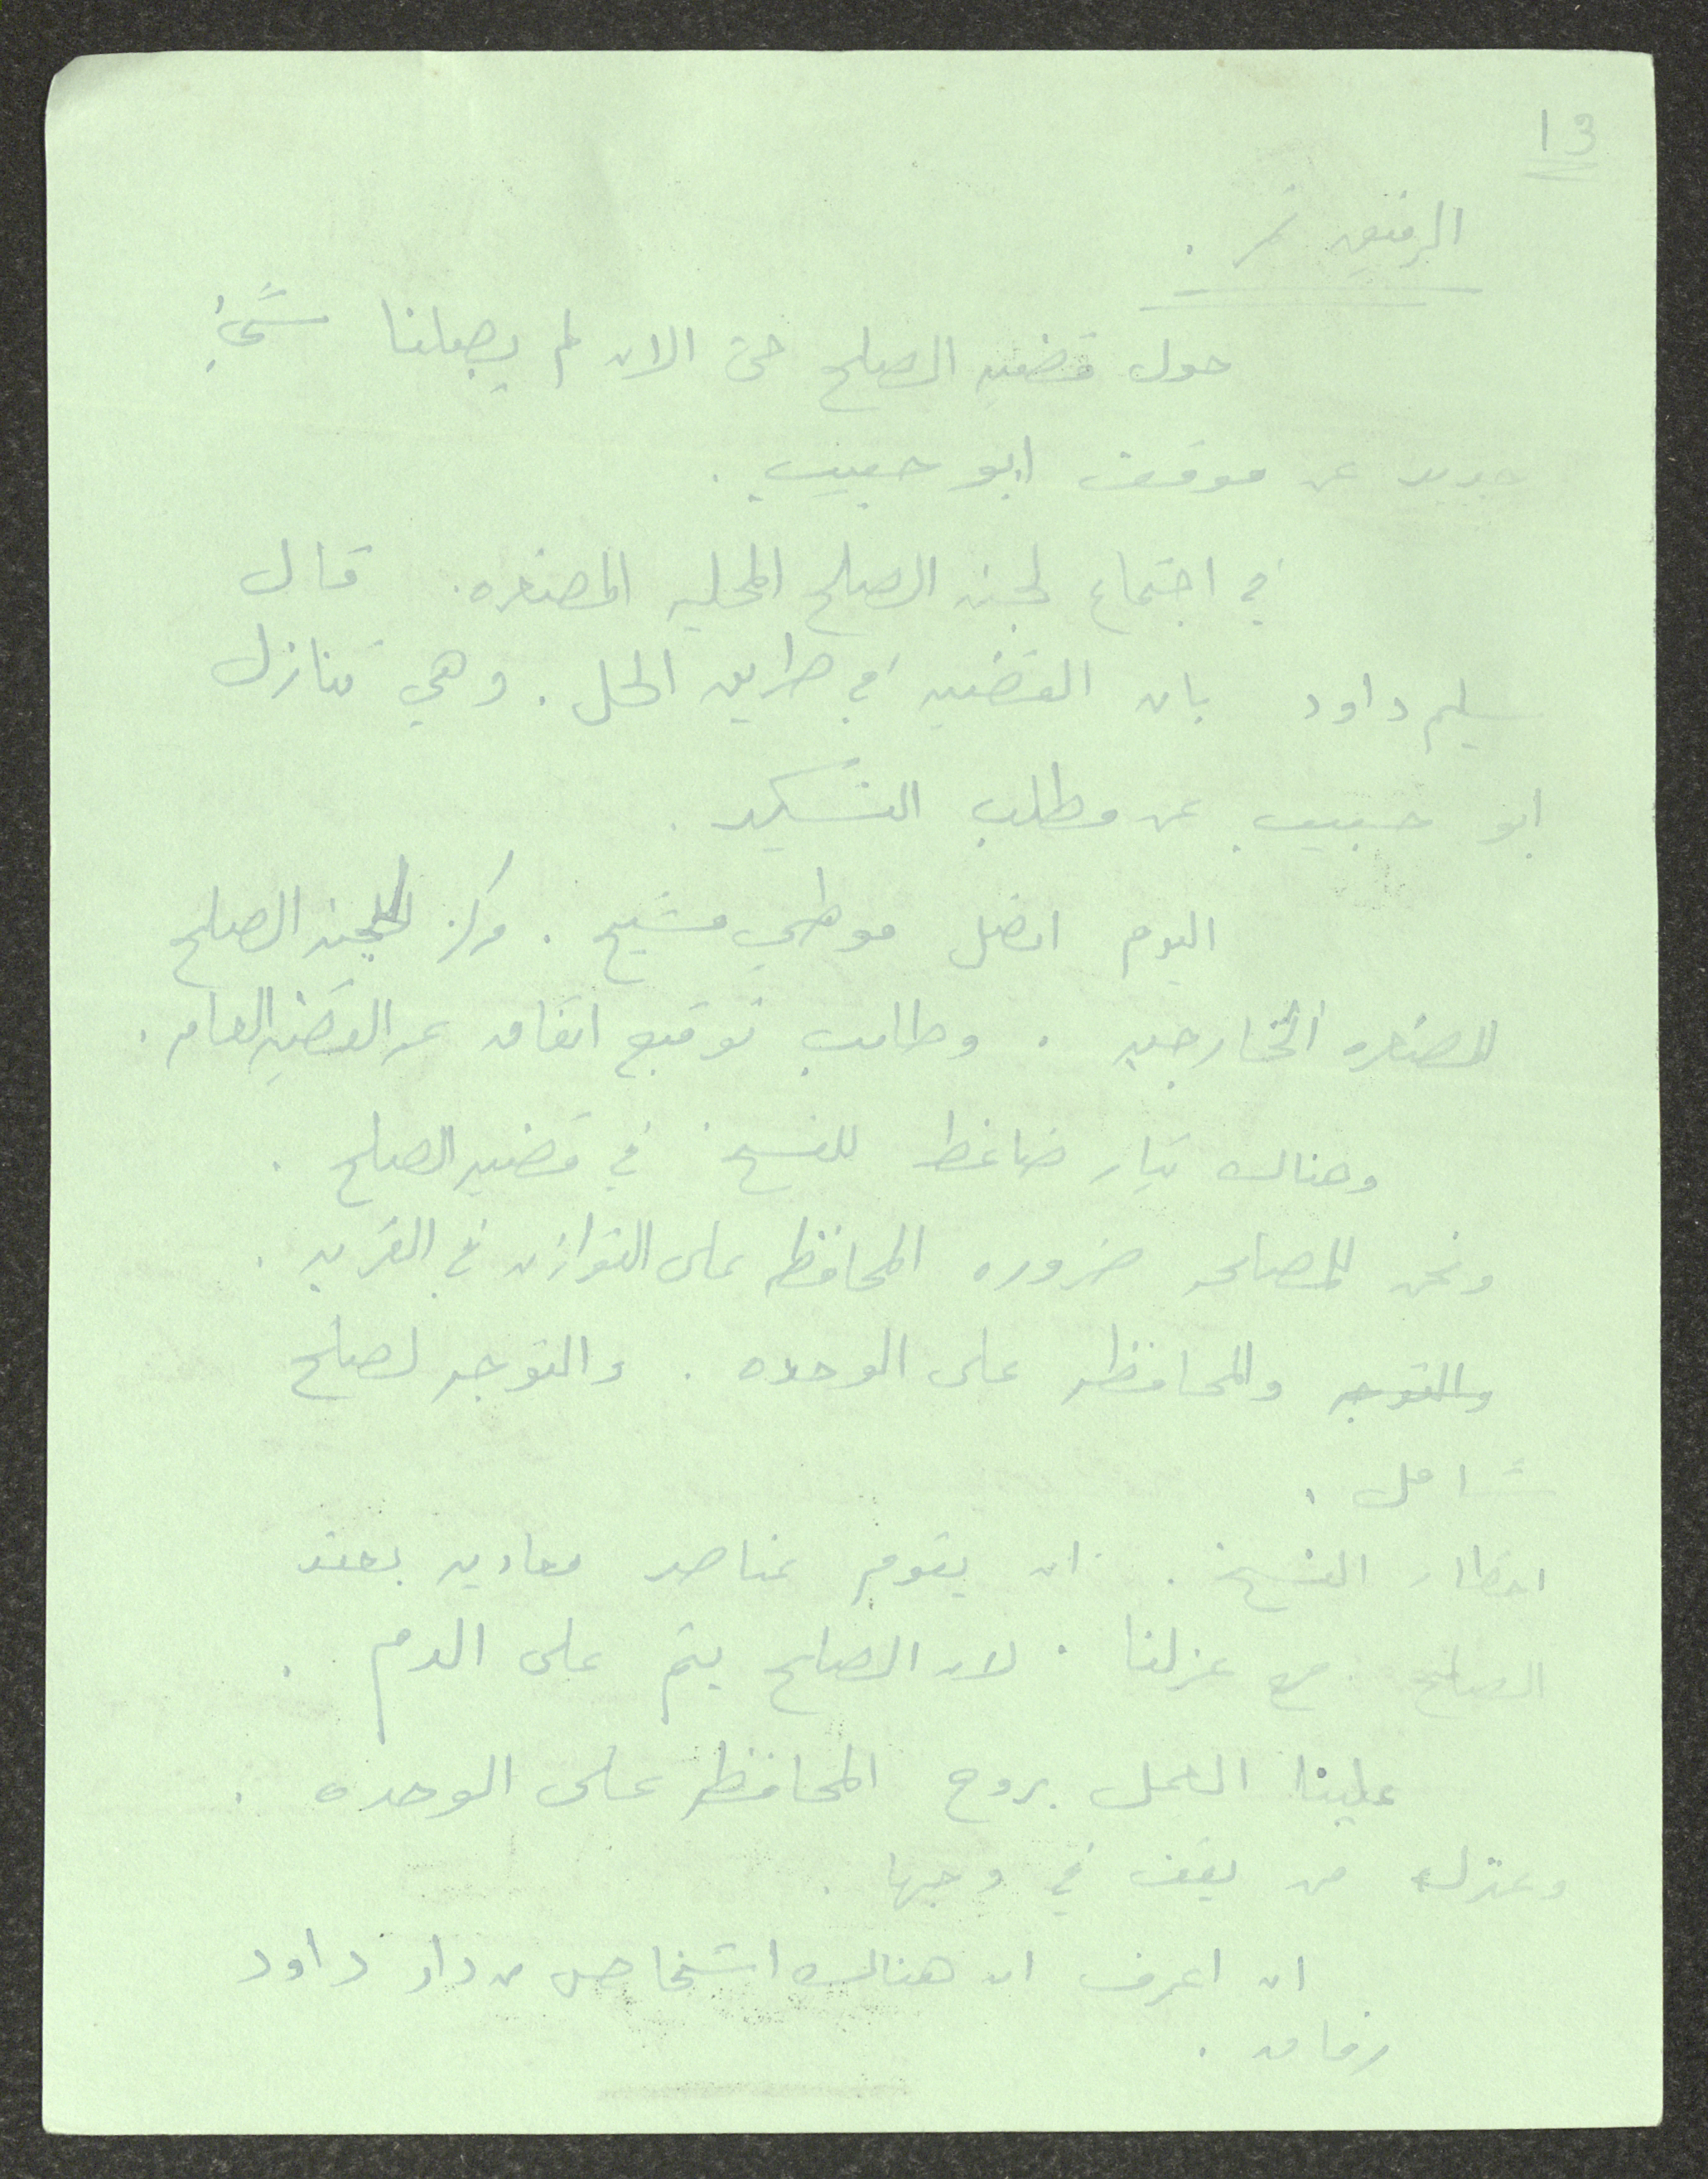 13
الرفيق نمر .
حول قضيه الصلح حتى الان لم يصلنا شيء
جديد عن موقف ابو حبيب .
في اجتماع لجنه الصلح المحليه المصغره . قال
سليم داود بان القضيه في طريق الحل . وهي تنازل
ابو حبيب عن مطلب
اليوم اتصل موطي مشيح . مركز للجنه الصلح
المصغره الخارجيه . وطالب توقيع اتفاق عن القضيه العامه .
وهناك تيار ضاغط للفسخ في قضيه الصلح .
ونحن للمصلحه ضروره المحافظه على التوازن في القريه .
والتوجه والمحافظه على الوحده . والتوجه لصلح
شامل .
اخطار الفسخ . ان يقوم عناصر معاديه بعقد
الصلح مع عزلنا . لان الصلح يتم على الدم .
علينا العمل بروح المحافظه على الوحده .
وعزل من يقف في وجهها .
ان اعرف ان هناك اشخاص من دار داود
رفاق .